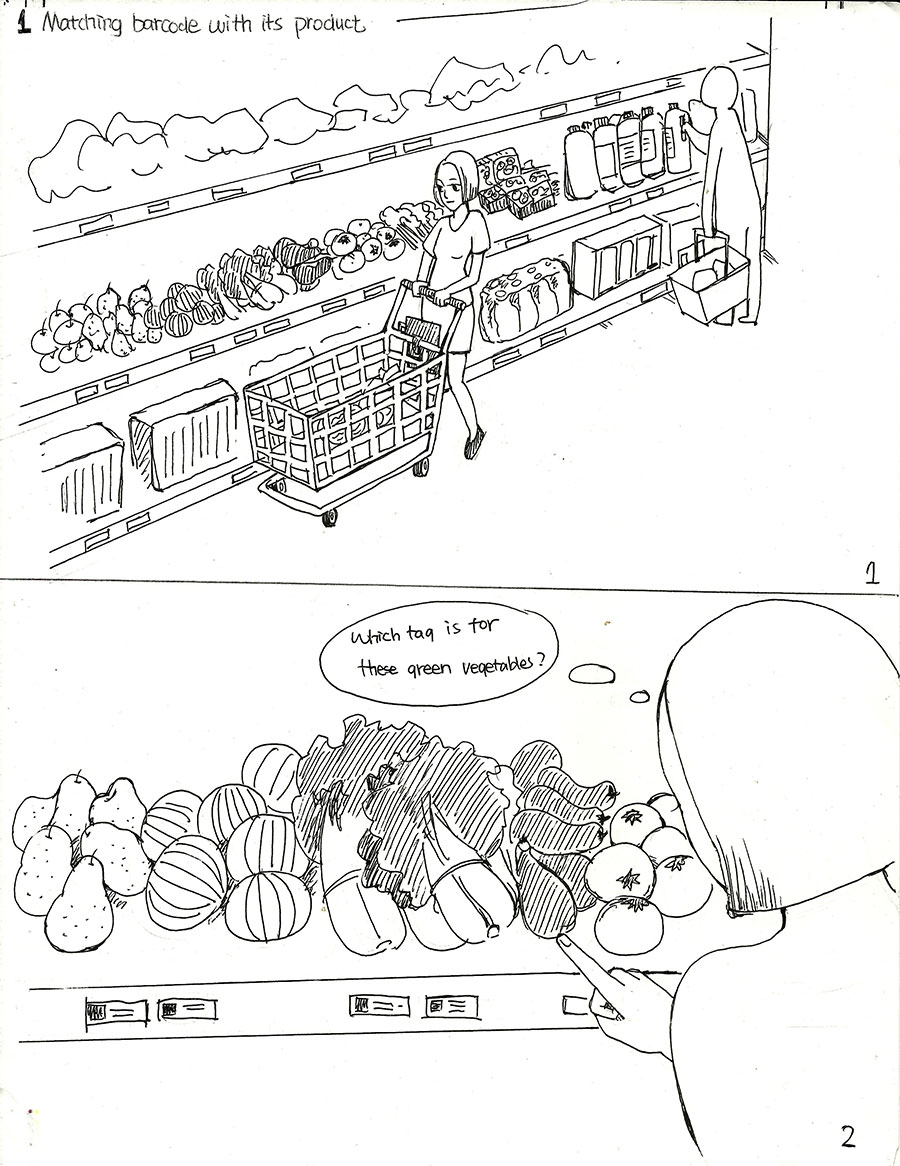 1 Matching barcode with its product
1
Which tag is for
these green vegetables?
2